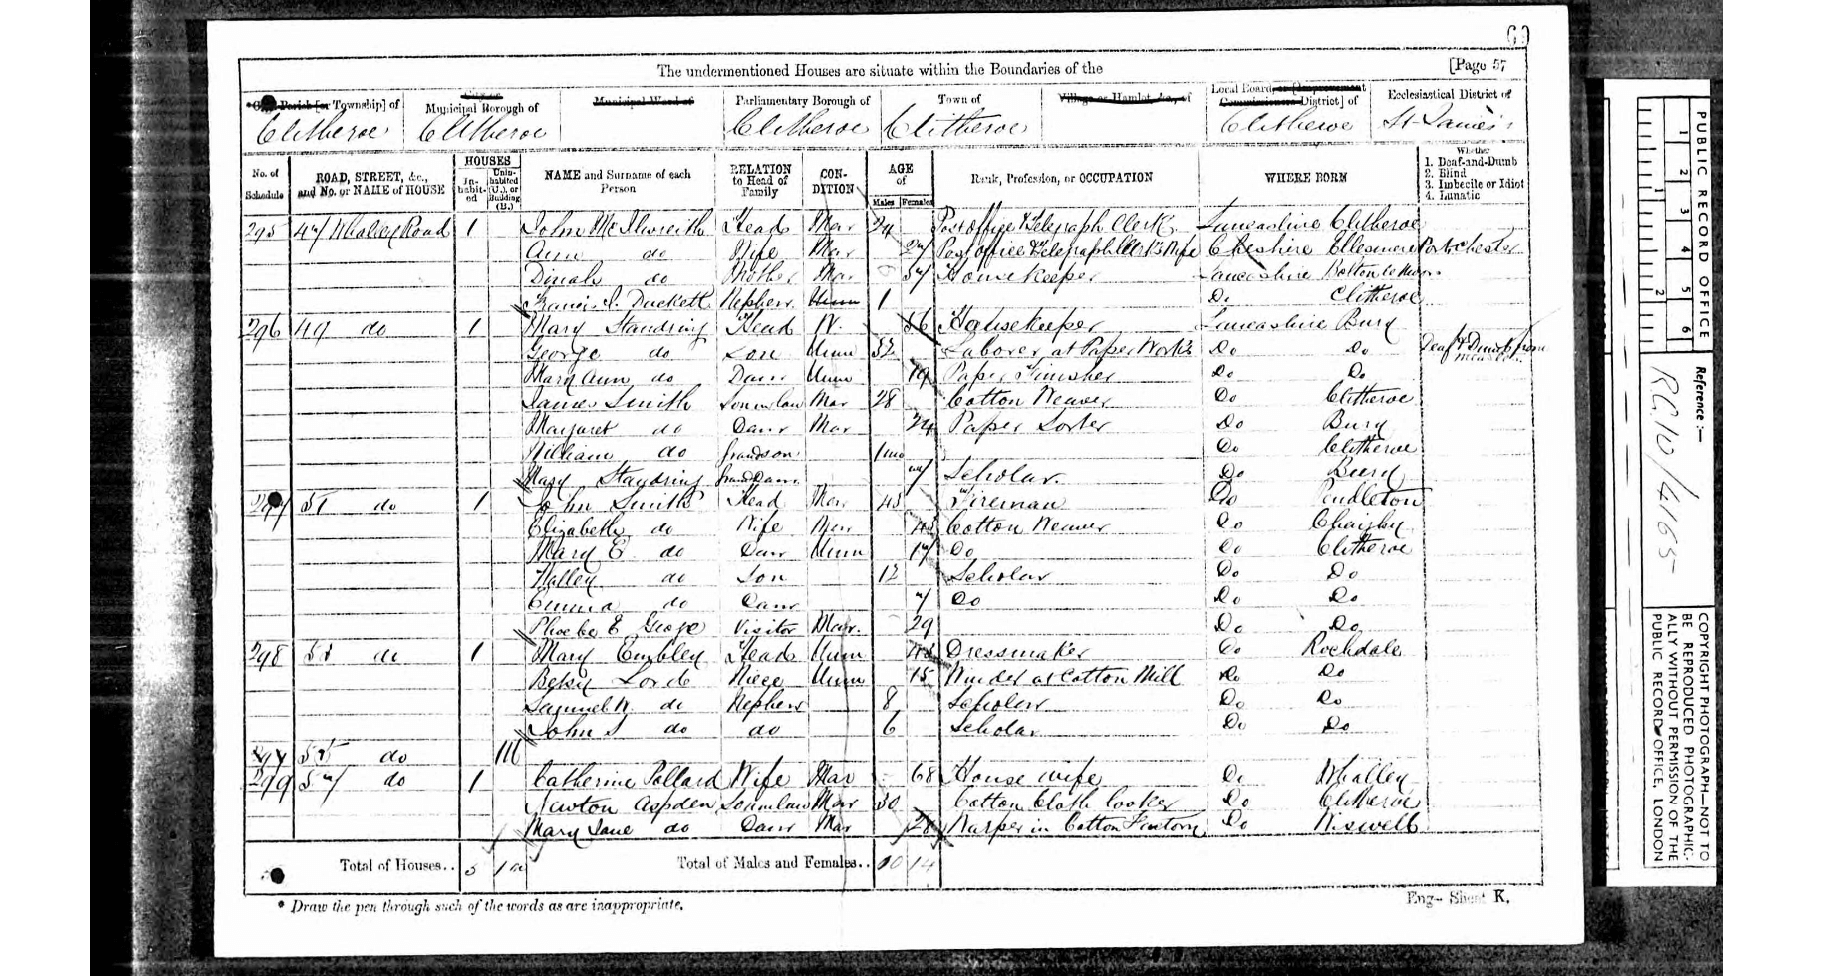 The undermentioned Houses are situate within the Boundaries of the [Page 57
Civil Parish [or Township] of
City or Municipal Borough of
Municipal Ward of
Parliamentary Borough of
Town of
Village or Hamlet, &c., of
Local Board, or [Improvement Commissioners District] of
Ecclesiastical District of
Clitheroe Clitheroe Clitheroe Clitheroe Clitheroe St James's
No. of Schedule
ROAD, STREET, &c., and No. or NAME of HOUSE
HOUSES
Inhabited
Uninhabited (U.), or Building (B.)
NAME and Surname of each Person
RELATION to Head of Family
CONDITION
AGE of
Males Females
Rank, Profession, or OCCUPATION
WHERE BORN
Whether
1. Deaf-and-Dumb
2. Blind
3. Imbecile or Idiot
4. Lunatic
295 47 Whalley Road 1 John McIlwreith Head Mar 24 Post office & Telegraph Clerk Lancashire Clitheroe
Ann do Wife Mar 27 Post office & Telegraph Clerk's Wife Cheshire Ellesmere
Dinah do Mother Mar 57 Homekeeper Lancashire Bolton le Moors
Duckett Nephew Unm 1 Do Clitheroe
296 49 do 1 Mary Standring Head W. 56 Housekeeper Lancashire Bury
George do Son Unm 32 Laborer at Paper Works Do Do Deaf & Dumb from
Mary Ann do Daur Unm 19 Paper Finisher Do Do
James Smith Son in law Mar 28 Cotton Weaver Do Clitheroe
Margaret do Daur Mar 24 Paper Sorter Do Bury
William do Grandson 1 mo Do Clitheroe
Mary Standring Grand Daur 7 Scholar Do Bury
297 51 do 1 John Smith Head Mar 43 Fireman Do Pendleton
Elizabeth do Wife Mar Cotton Weaver Do Chaigley
Mary E do Daur Unm 17 Do Do Clitheroe
do Son 12 Scholar Do Do
Emma do Daur 7 Do Do Do
Phoebe E Visitor Mar. 29 Do Do
298 53 do 1 Mary Embley Head Unm Dressmaker Do Rochdale
Betsy Lord Niece Unm 15 Winder at Cotton Mill Do Do
Samuel W. do Nephew 8 Scholar Do Do
John S do do 6 Scholar Do Do
55 do 1U
299 57 do 1 Catherine Pollard Wife Mar 68 House wife Do Whalley
Newton Aspden Son in law Mar 30 Cotton Cloth looker Do Clitheroe
Mary Jane do Daur Mar 28 Warper in Cotton Factory Do Wiswell
Total of Houses.. 5 1 U Total of Males and Females.. 10 14
* Draw the pen through such of the words as are inappropriate.
Eng— Sheet K.
PUBLIC RECORD OFFICE
1 2 3 4 5 6
1 2
Reference :—
RG 10/4165
COPYRIGHT PHOTOGRAPH—NOT TO
BE REPRODUCED PHOTOGRAPHIC-
ALLY WITHOUT PERMISSION OF THE
PUBLIC RECORD OFFICE, LONDON